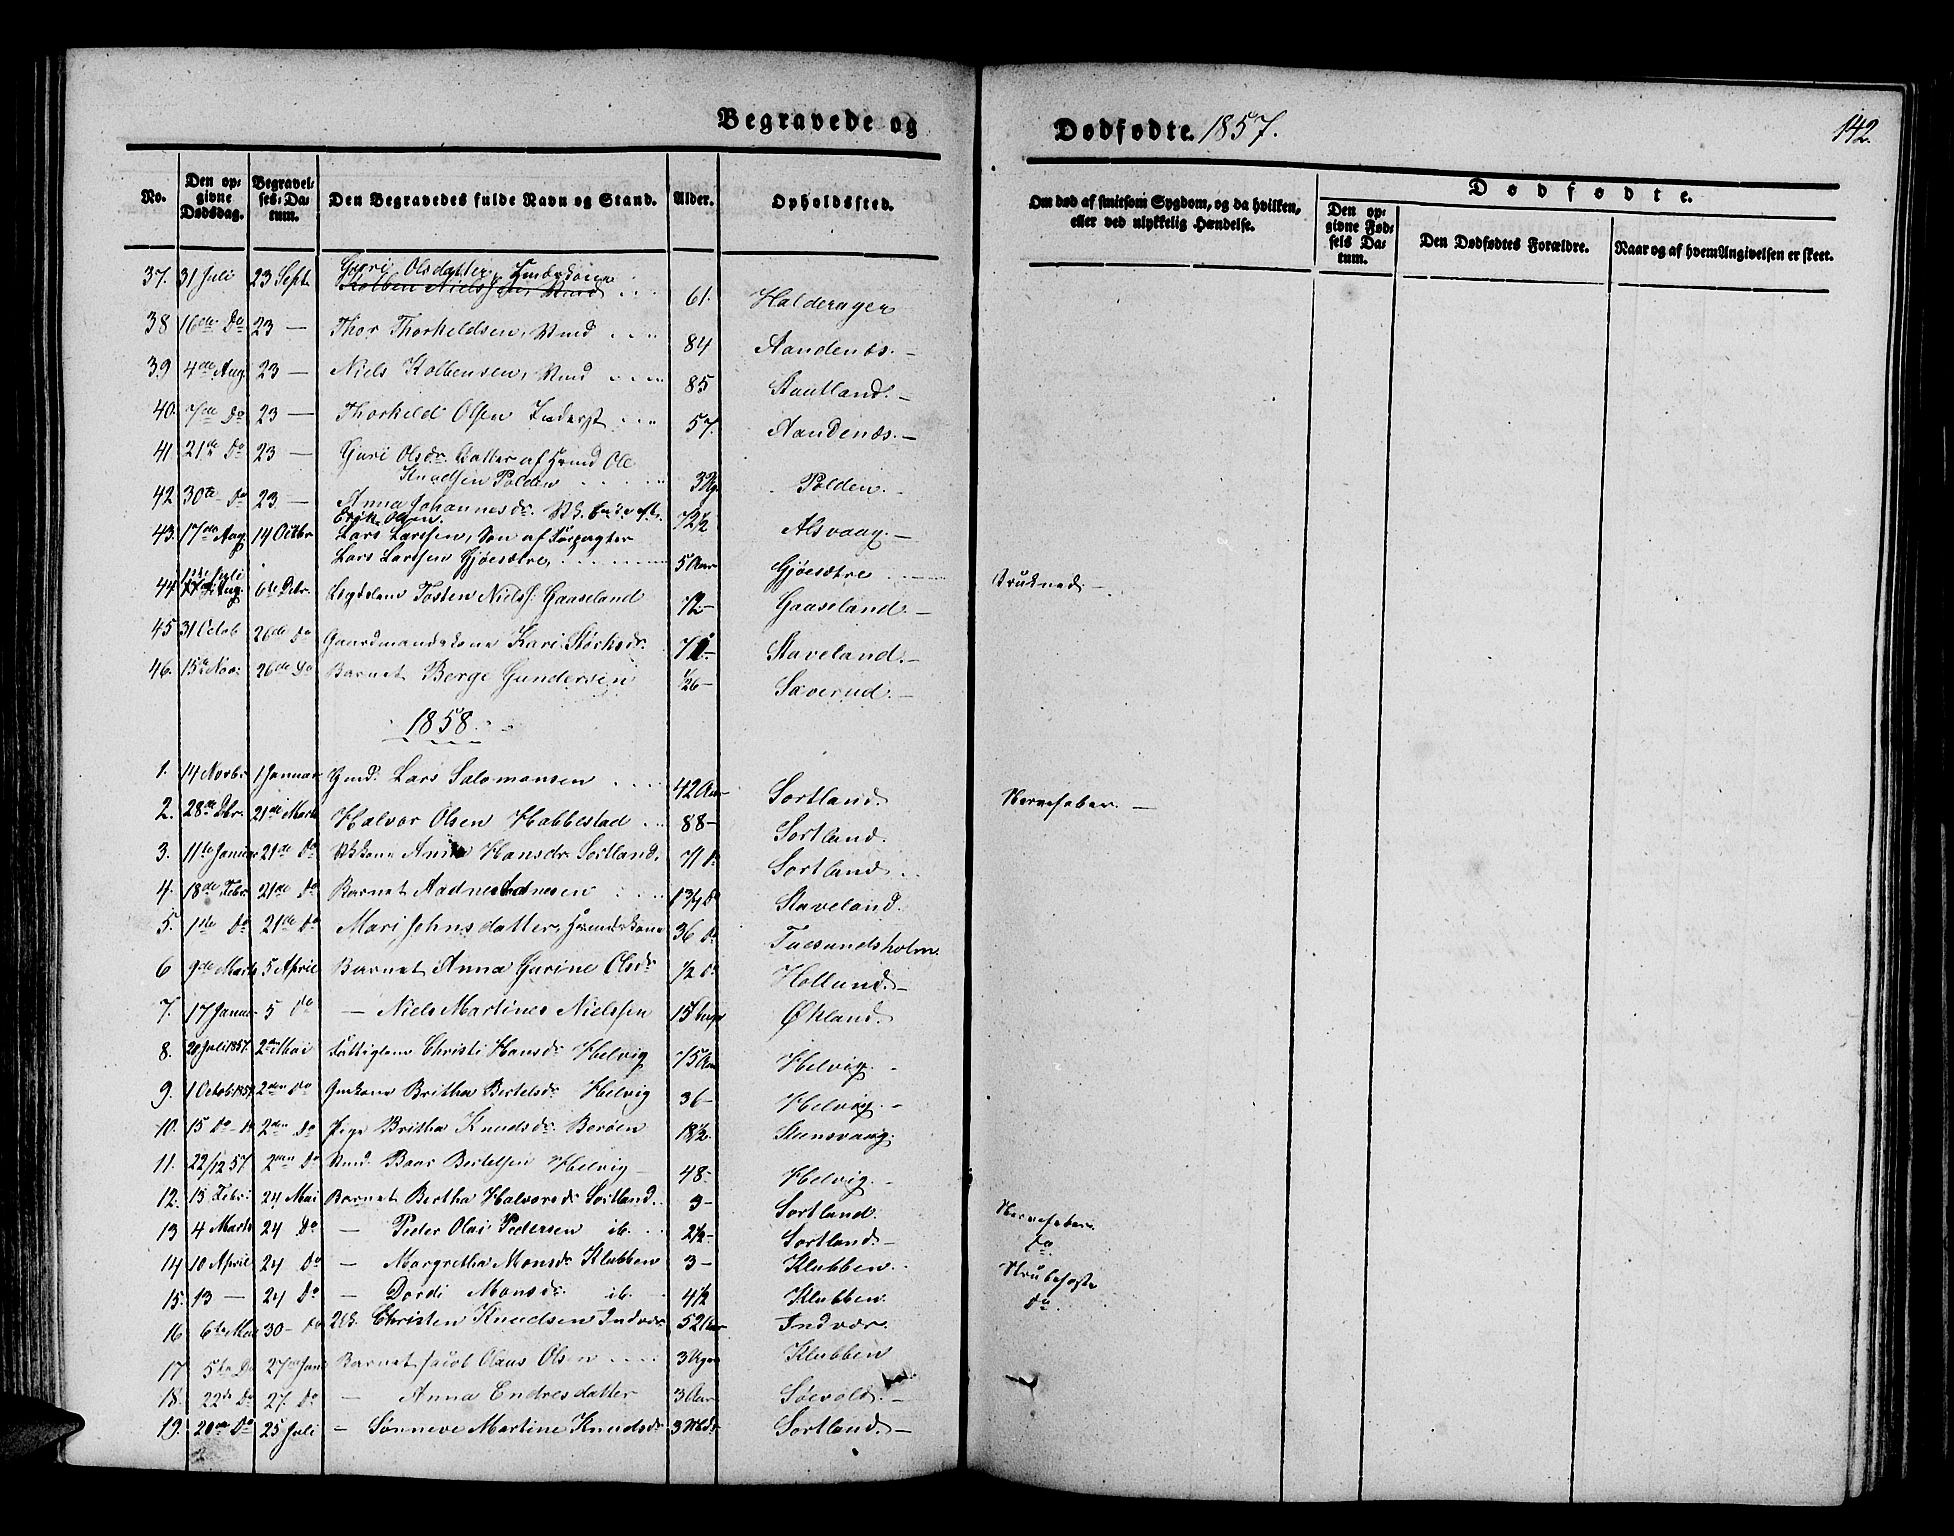 Begravede og Dødfødte. 1857. 142.
No. | Den opgivne Dødsdag. | Begravelses-Datum. | Den Begravedes fulde Navn og Stand. | Alder. | Opholdssted. | Om død af smitsom Sygdom, og da hvilken, eller ved ulykkelig Hændelse. | Dødfødte. | Den opgivne Fødsels Datum. | Den Dødfødtes Forældre. | Naar og af hvem Angivelsen er skeet.
37. 31 Juli 23 Septr Guri Olsdatter, 61. Halderager
Kolben Nielssen,
38 16de Do 23 — Thor Thorkeldsen, 84 Aandenæs. —
39 4de Aug 23 — Niels Kolbensen, 85 Staatland. —
40. 7de Do 23 — Thorkild Olsen Inderst 57. Aandenæs. —
41 21de Do 23 — Guri Olsdr. Datter af Ole
Knudsen Polden 3 Polden. —
42 30te Do 23 — Anna Johannesdr. 72½ Alsvaag. —
Erik Olsen.
43. 17de Aug 14 Octbr Lars Larssen, Søn af
Lars Larssen Gjøesætre, 5 Aar Gjøesætre
44 6te Dcbr. Tosten Nielss: Gaaseland 72 — Gaaseland. — Druknede. —
45 31 Octob 26de Do Gaardmandskone Kari Størksdr. Staveland. —
46. 15de Nov: 26de Do Barnet Berge Gundersen 1/26 — Saverud. —
1858.
1. 14 Novbr 1 Januar Gmd: Lars Salomonsen 42 Aar Sortland. Nervefeber. —
2. 28de Dbr. 21de Marts Halvor Olsen Habbestad 88 — Sortland.
3. 11te Januar 21de Do Anna Hansdr. Sortland. 71 Do Sortland.
4. 18de Febr 21de Do Barnet Aadne Adnesen 1¾ Do Staveland.
5. 1ste Do 21de Do Mari Johnsdatter, 36 Do Tuesundsholm.
6 9de Marts 5 April Barnet Anna Gurine Olsdr. ½ Do Hollund. —
7. 17 Januar 5 Do — Niels Martines Nielssen 15 Økland.
8. 20 Juli 1857 2den Mai Fattiglem Christi Hansdr. Helvig 75 Aar Helvig. —
9. 1 Octob 1857 2den Do Gmkone Britha Bertelsdr. Helvig 36 — Helvig. —
10. 15 Do — Do 2den Do Pige Britha Knudsdr. Berøen 18½. Steensvaag.
11. 22/12 57 2den Do Baar Bertelsen Helvig — 48. Helvig. —
12. 15 Febr: 24 Mai Barnet Bertha Halvorsdr. Sortland. 3 — Sortland. Nervefeber.
13 4 Marts 24 Do — Peder Olai Pedersen ib. 2½ — Sortland. — Do
14 10 April 24 Do — Margretha Monsdr. Klubben 3 — Klubben Strubehoste
15. 13 — 24 Do — Dordi Monsdr. ib. 4½ Klubben Do
16 6te Mai 30 — Do Christen Knudsen Indvær 52 Aar Indvær.
17 5te Do 27de Juni Barnet Jacob Claus Olsen 3 Uger Klubben
18. 22de Do 27. Do — Anna Endresdatter 3 Aar Søevold. —
19. 20de Do 25 Juli — Sønneve Martine Knudsdr. 3 Mdr Sortland. —